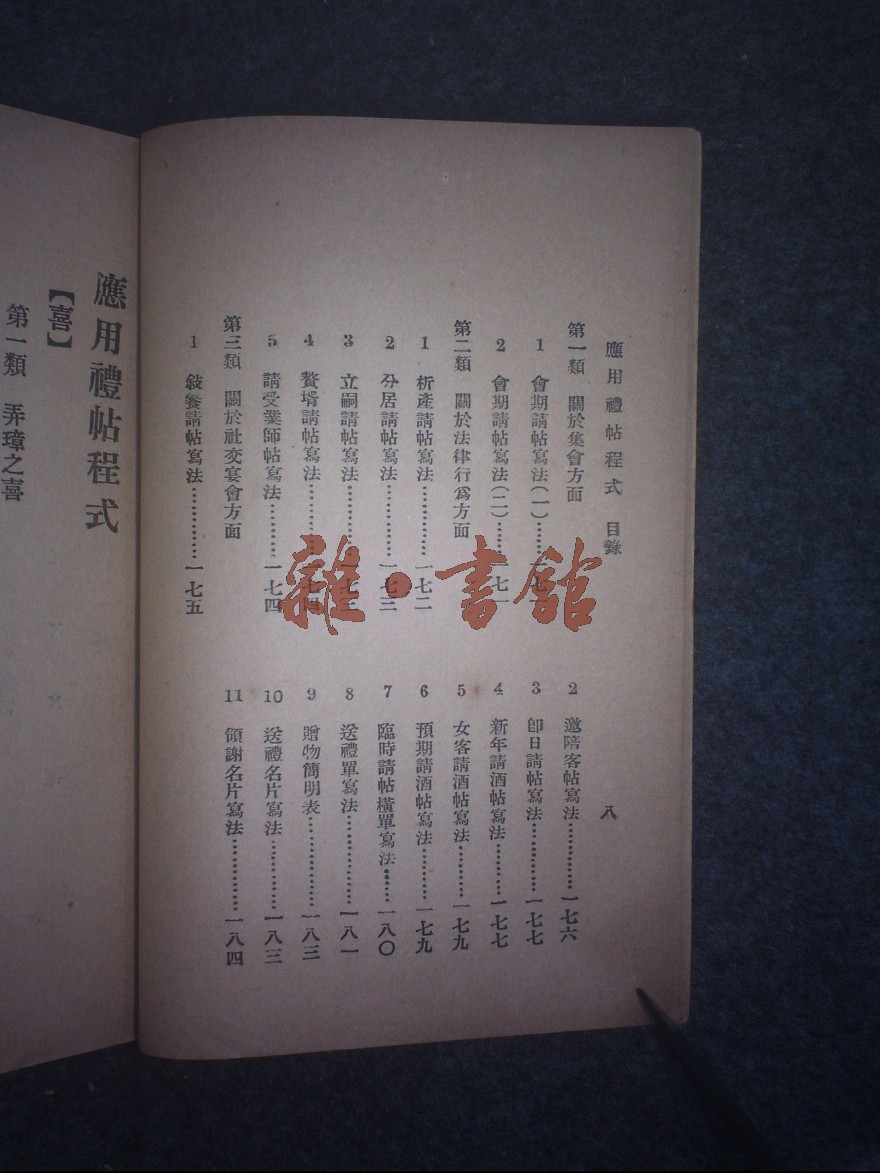 應用禮帖程式 目錄 八
第一類 關於集會方面
1 會期請帖寫法(一)………一七一
2 會期請帖寫法(二)………一七一
第二類 關於法律行爲方面
1 析產請帖寫法……………一七二
2 分居請帖寫法……………一七三
3 立嗣請帖寫法……………一七三
4 贅壻請帖寫法……………一七四
5 請受業師帖寫法…………一七四
第三類 關於社交宴會方面
1 敍餐請帖寫法……………一七五
2 邀陪客帖寫法……………一七六
3 卽日請帖寫法……………一七七
4 新年請酒帖寫法…………一七七
5 女客請酒帖寫法…………一七九
6 預期請酒帖寫法…………一七九
7 臨時請帖橫單寫法………一八〇
8 送禮單寫法………………一八一
9 贈物簡明表………………一八三
10 送禮名片寫法……………一八三
11 領謝名片寫法……………一八四
應用禮帖程式
【喜】
第一類 弄璋之喜
雜·書館